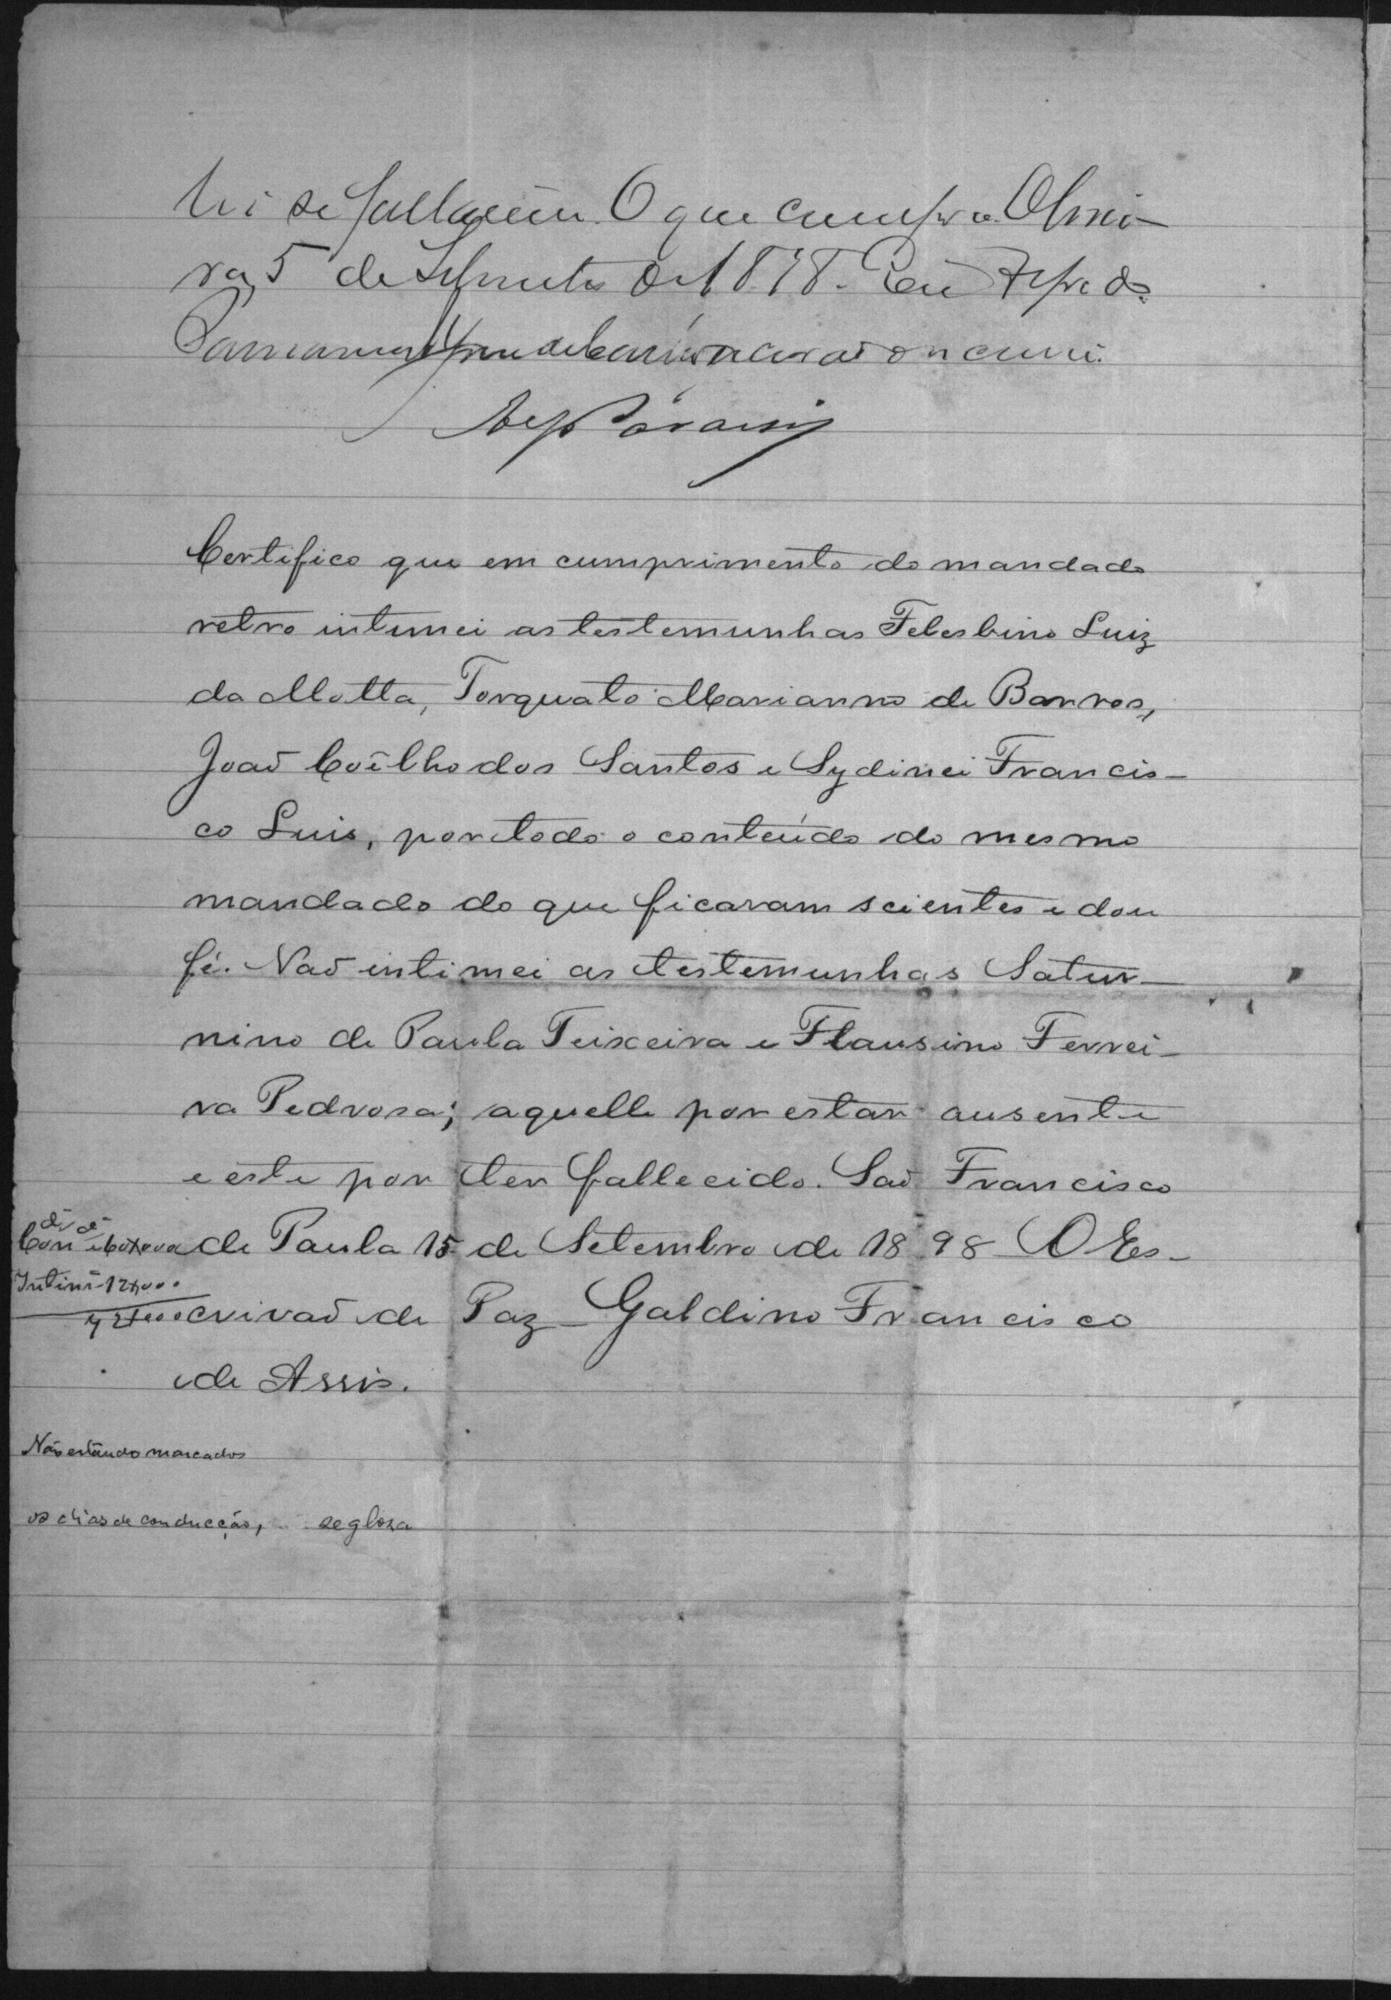 lei se faltarem. O que cumpra. Olivei-
ra, 5 de Setembro de 1898. Eu Alfredo
escrivão o escrevi.
Certifico que em cumprimento do mandado
retro intimei as testemunhas Felesbino Luiz
da Motta, Torquato Marianno de Barros,
João Coêlho dos Santos e Sydinei Francis-
co Luis, por todo o conteúdo do mesmo
mandado do que ficaram scientes e dou
fé. Naõ intimei as testemunhas Satur-
nino de Paula Teixeira e Flausino Ferrei-
ra Pedrosa; aquelle por estar ausente
e este por ter fallecido. Saõ Francisco
de Paula 15 de Setembro de 1898 O Es-
crivaõ de Paz - Galdino Francisco
de Assis.
Intim 12$000
Não estando marcados
os dias de conducção, se glosa